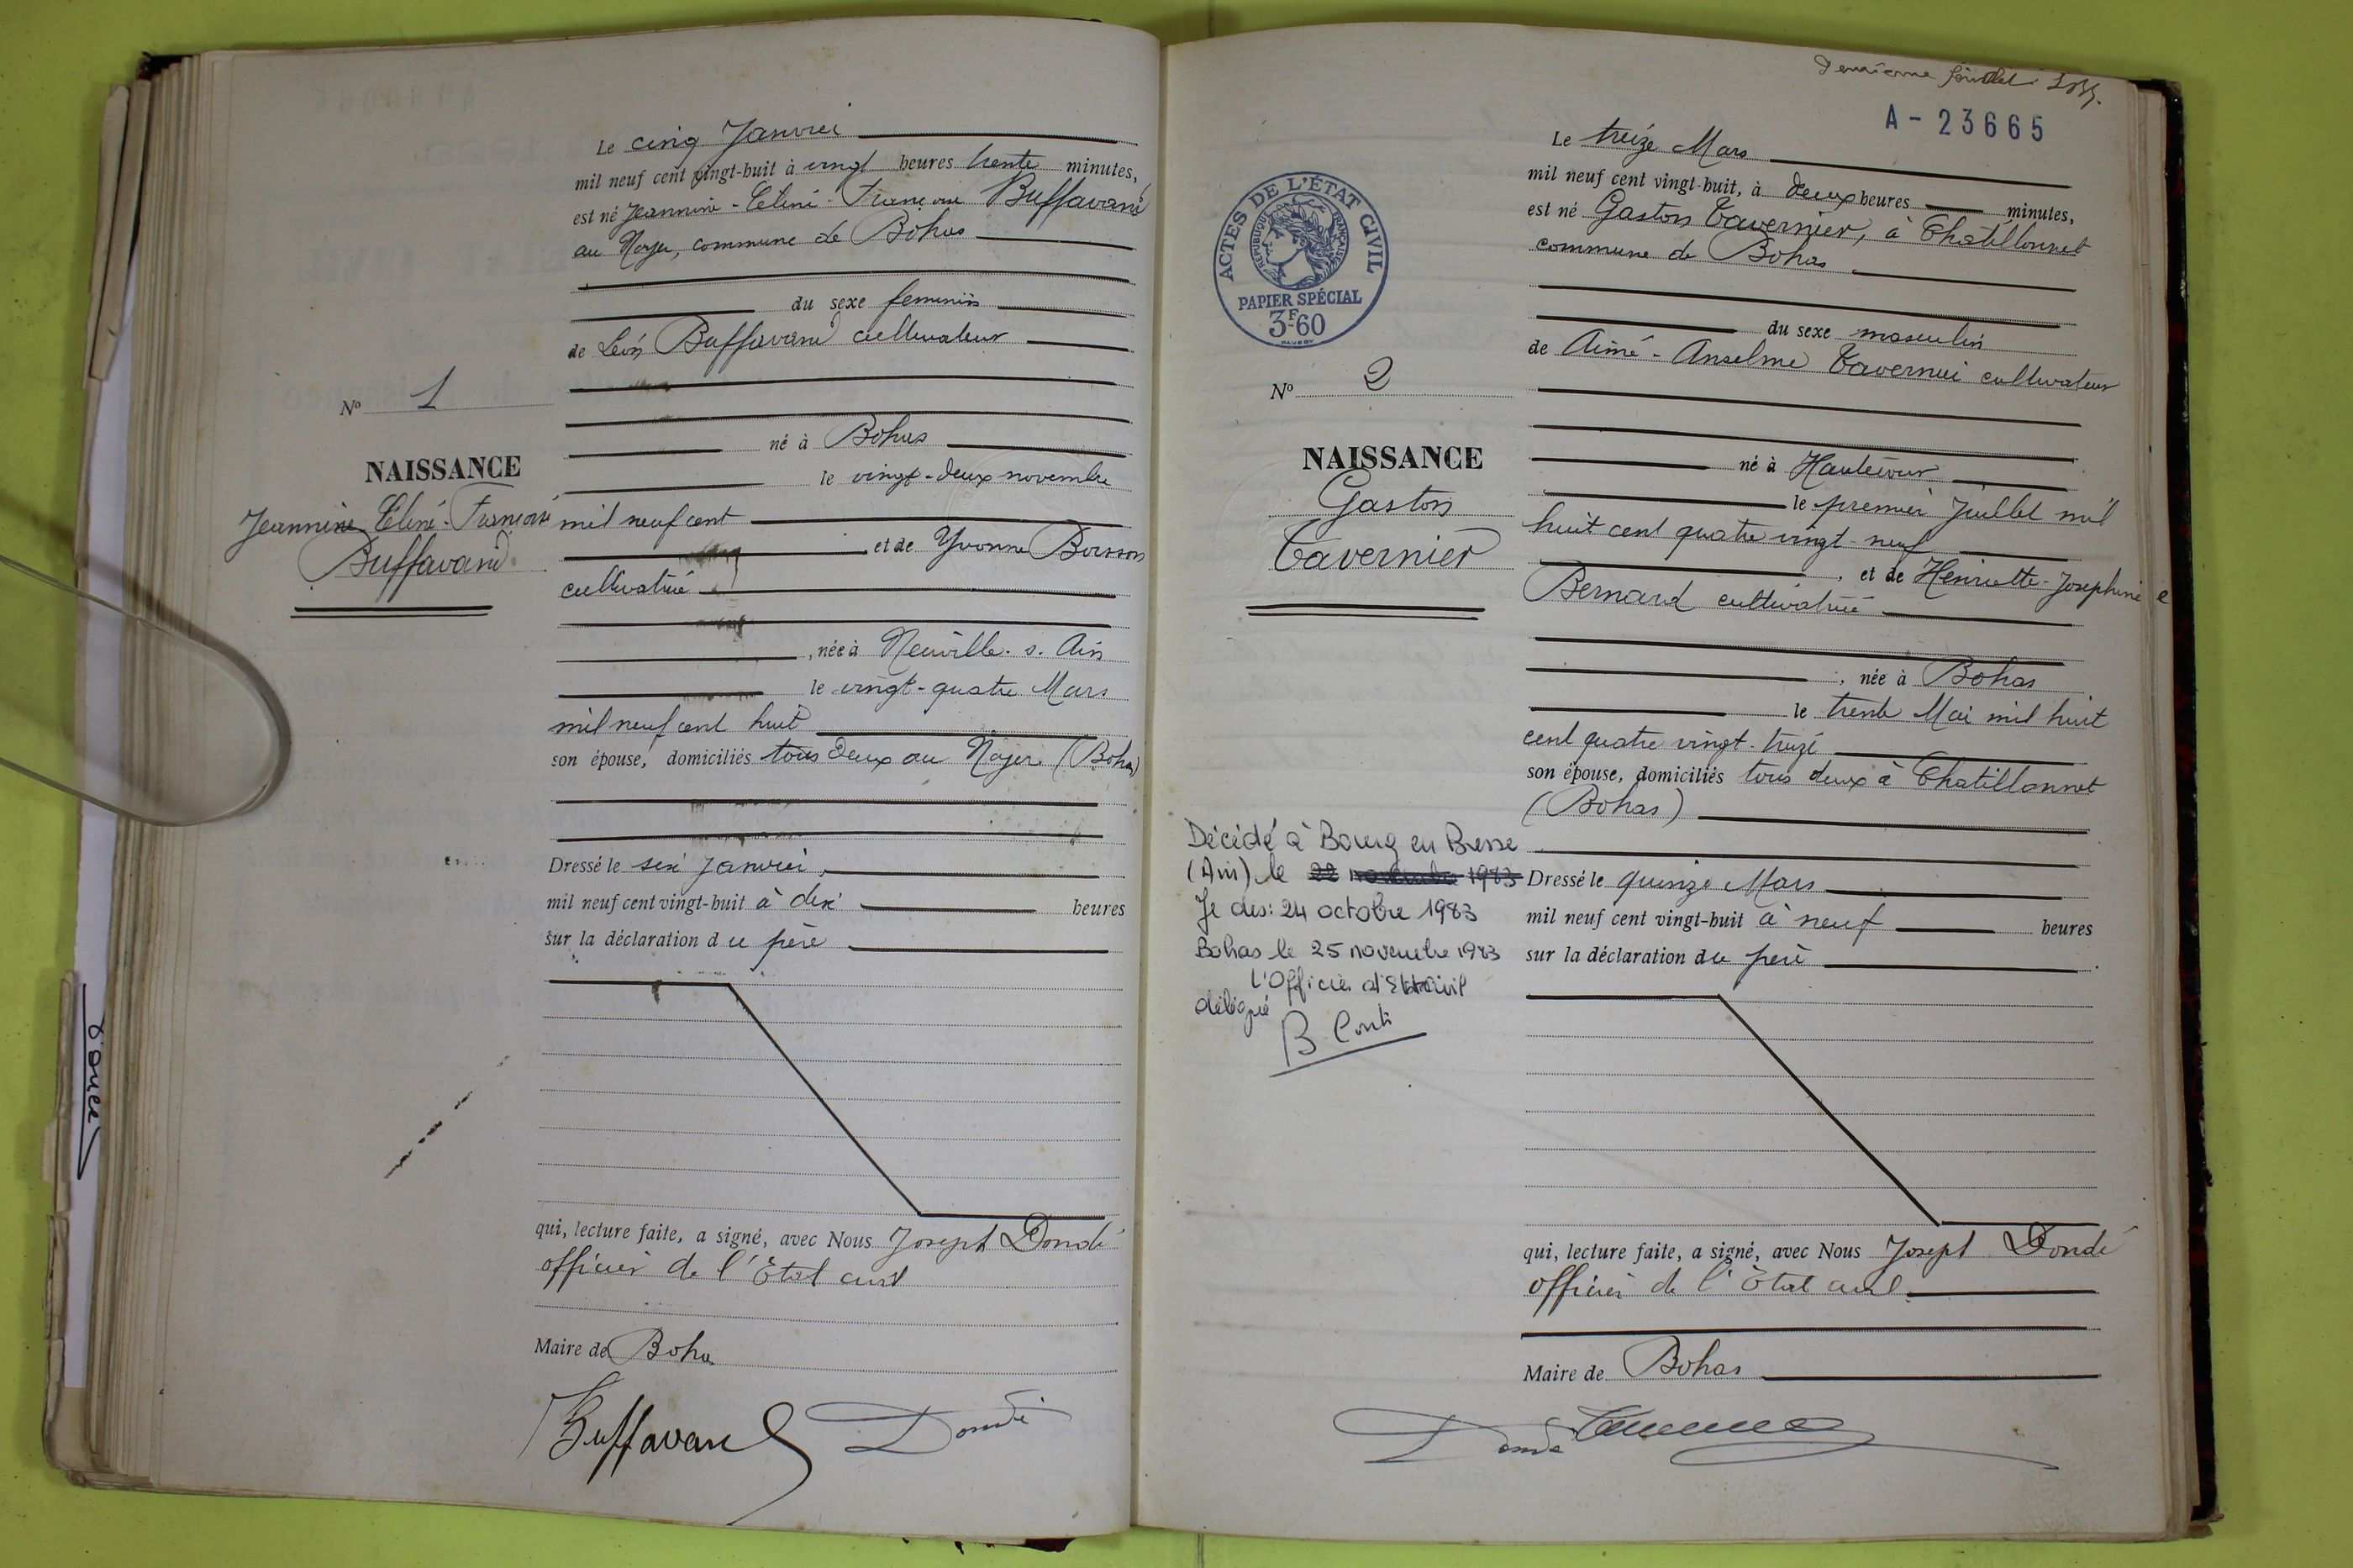 Le cinq Janvier
mil neuf cent vingt-huit à vingt heures trente minutes,
est né Jeannine-Céline-Françoise Buffavand
au Noyer, commune de Bohas
du sexe feminin
de Léon Buffavand cultivateur
né à Bohas
le vingt-deux novembre
mil neuf cent
, et de Yvonne Boisson
cultivatrice
, née à Neuville. s. Ain
le vingt-quatre Mars
mil neuf cent huit
son épouse, domiciliés tous deux au Noyer (Bohas)
Dressé le six Janvier,
mil neuf cent vingt-huit à dix heures
sur la déclaration du père
qui, lecture faite, a signé, avec Nous Joseph Dondé
officier de l'État civil
Maire de Bohas
Buffavand Dondé
No 1
NAISSANCE
Jeannine Céline-Françoise
Buffavand
Deuxième feuillet
A-23665
Le treize Mars
mil neuf cent vingt-huit, à deux heures minutes,
est né Gaston Tavernier, à Chatillonnet
commune de Bohas
du sexe masculin
de Aimé-Anselme Tavernier cultivateur
né à Hautecour
le premier Juillet mil
huit cent quatre vingt-neuf
, et de Henriette-Josephine
Bernard cultivatrice
, née à Bohas
le trente Mai mil huit
cent quatre vingt-treize
son épouse, domiciliés tous deux à Chatillonnet
(Bohas)
Dressé le quinze Mars
mil neuf cent vingt-huit à neuf heures
sur la déclaration du père
qui, lecture faite, a signé, avec Nous Joseph Dondé
officier de l'État civil
Maire de Bohas
Dondé Tavernier
ACTES DE L'ÉTAT CIVIL
RÉPUBLIQUE FRANÇAISE
PAPIER SPÉCIAL
3F60
No 2
NAISSANCE
Gaston
Tavernier
Décédé à Bourg en Bresse
(Ain) le 22 novembre 1983
Je dis: 24 octobre 1983
Bohas le 25 novembre 1983
L'Officier d'Etat Civil
délégué
B. Conti